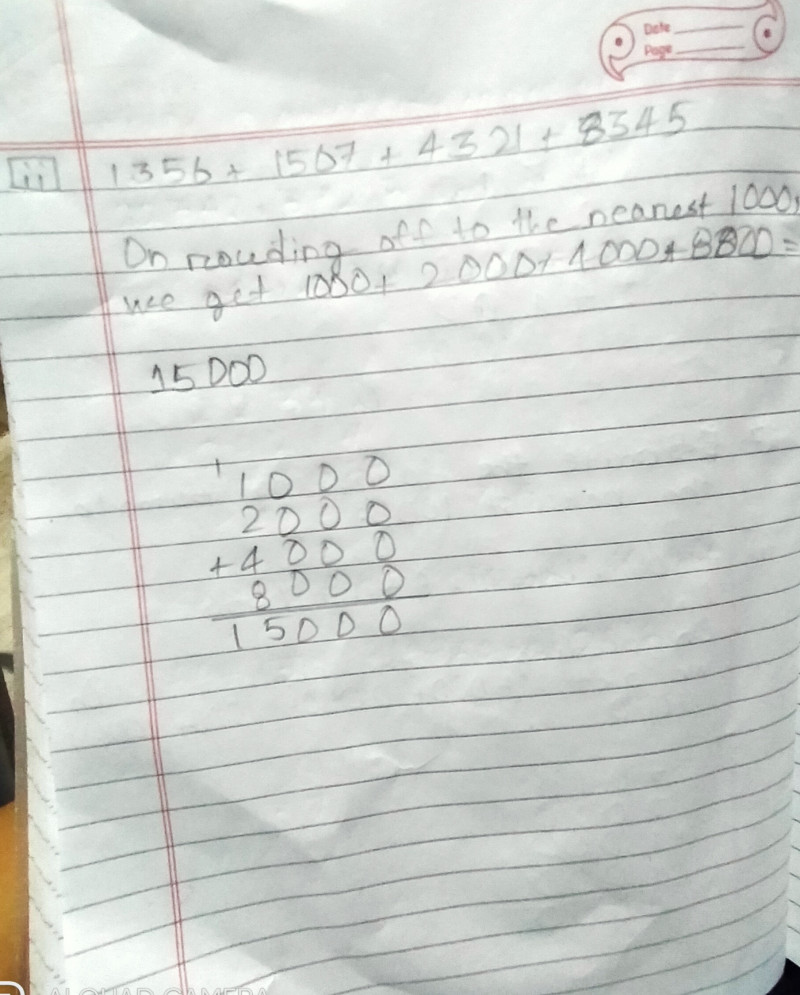 Date
Page
ii 1356 + 1567 + 4321 + 8345
On rouding off to the nearest 1000,
we get 1000+ 2000+ 4000+ 8000 =
15000
1
1000
2000
+4000
8000
15000